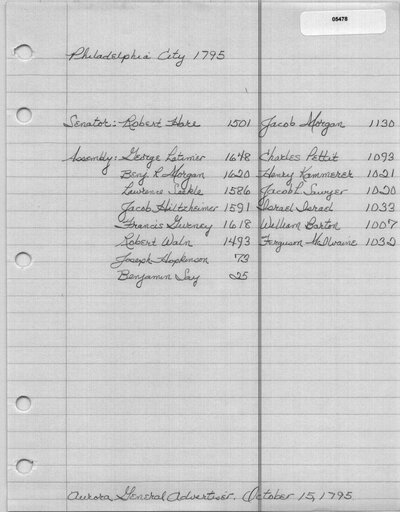 05478
Philadelphia City 1795
Senator: Robert Hare 1501 Jacob Morgan 1130
Assembly: George Latimer 1648 Charles Pettit 1093
Benj. R. Morgan 1620 Henry Kammerer 1021
Lawrence Seckle 1586 Jacob L. Swyer 1020
Jacob Hiltzheimer 1591 Israel Israel 1033
Francis Gurney 1618 William Barton 1007
Robert Waln 1493 Ferguson McIlvaine 1032
Joseph Hopkinson 73
Benjamin Say 25
Aurora General Advertiser. October 15, 1795